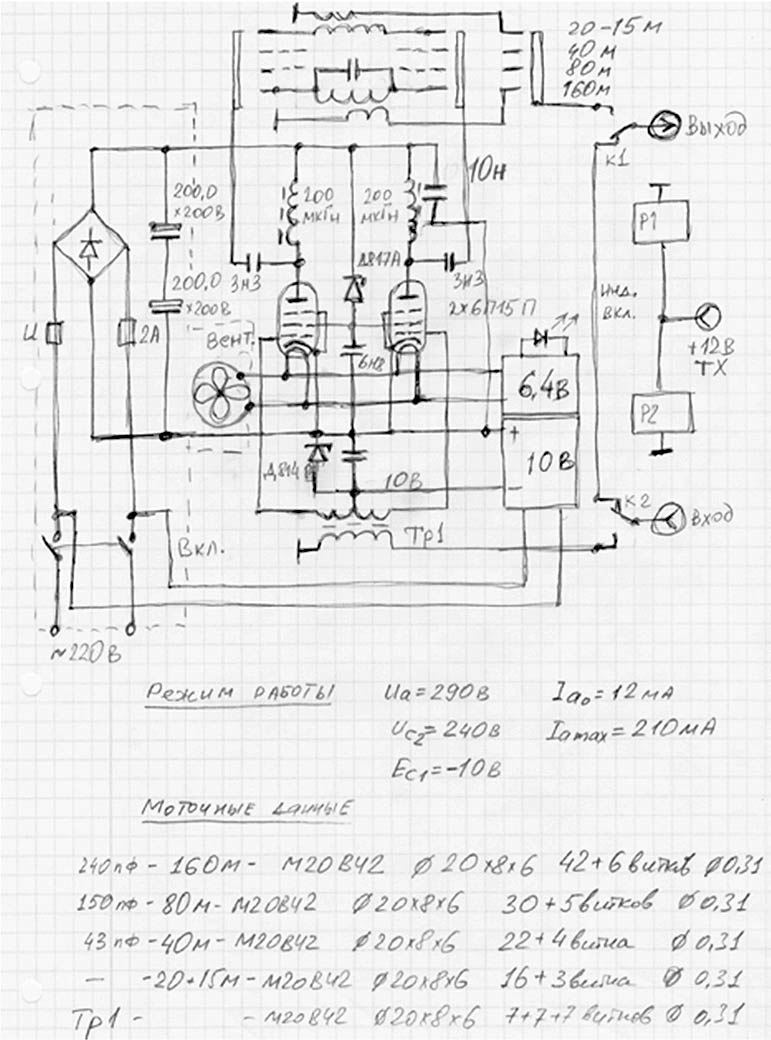 20-15м
40м
80м
160м
Выход
К1
10н
200,0
×200В
200
мкГн
200
мкГн
Р1
Д817А
3н3
3н3
200,0
×200В
2×6П15П
Инд.
вкл.
2А
Вент.
6н8
+12В
ТХ
6,4В
Р2
+
10В
Д814
10В
-
К2
Вход
Тр1
Вкл.
~220В
Режим работы Ua=290в Iao=12мА
Uc2=240в Iamax=210мА
Ec1=-10в
Моточные данные
240пф - 160м - М20ВЧ2 Ø20×8×6 42+6витков Ø0,31
150пф - 80м - М20ВЧ2 Ø20×8×6 30+5витков Ø0,31
43пф - 40м - М20ВЧ2 Ø20×8×6 22+4витка Ø0,31
- -20+15м - М20ВЧ2 Ø20×8×6 16+3витка Ø0,31
Тр1 - - М20ВЧ2 Ø20×8×6 7+7+7витков Ø0,31